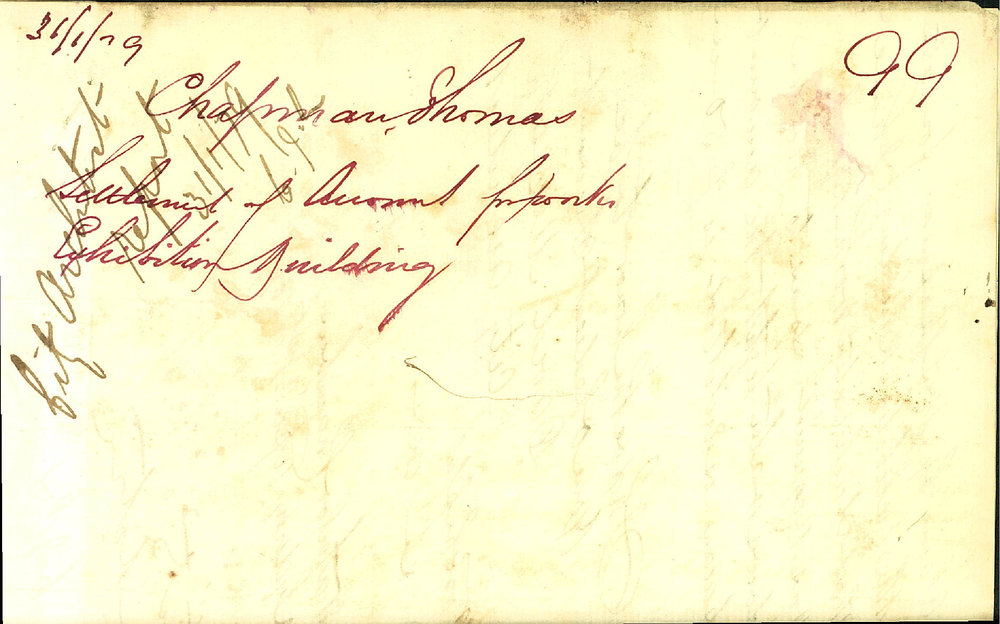 31/1/79
99
Chapman, Thomas
Settlement of Account for works
Exhibition Building
City Architect
Report
31/1/79